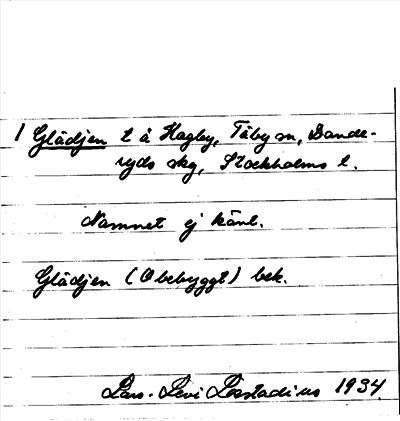 1 Glädjen t å Hagby, Täby sn, Dande-
ryds skg, Stockholms l.
Namnet ej känt.
Glädjen (Obebyggt) bek.
Lars-Levi Læstadius 1934